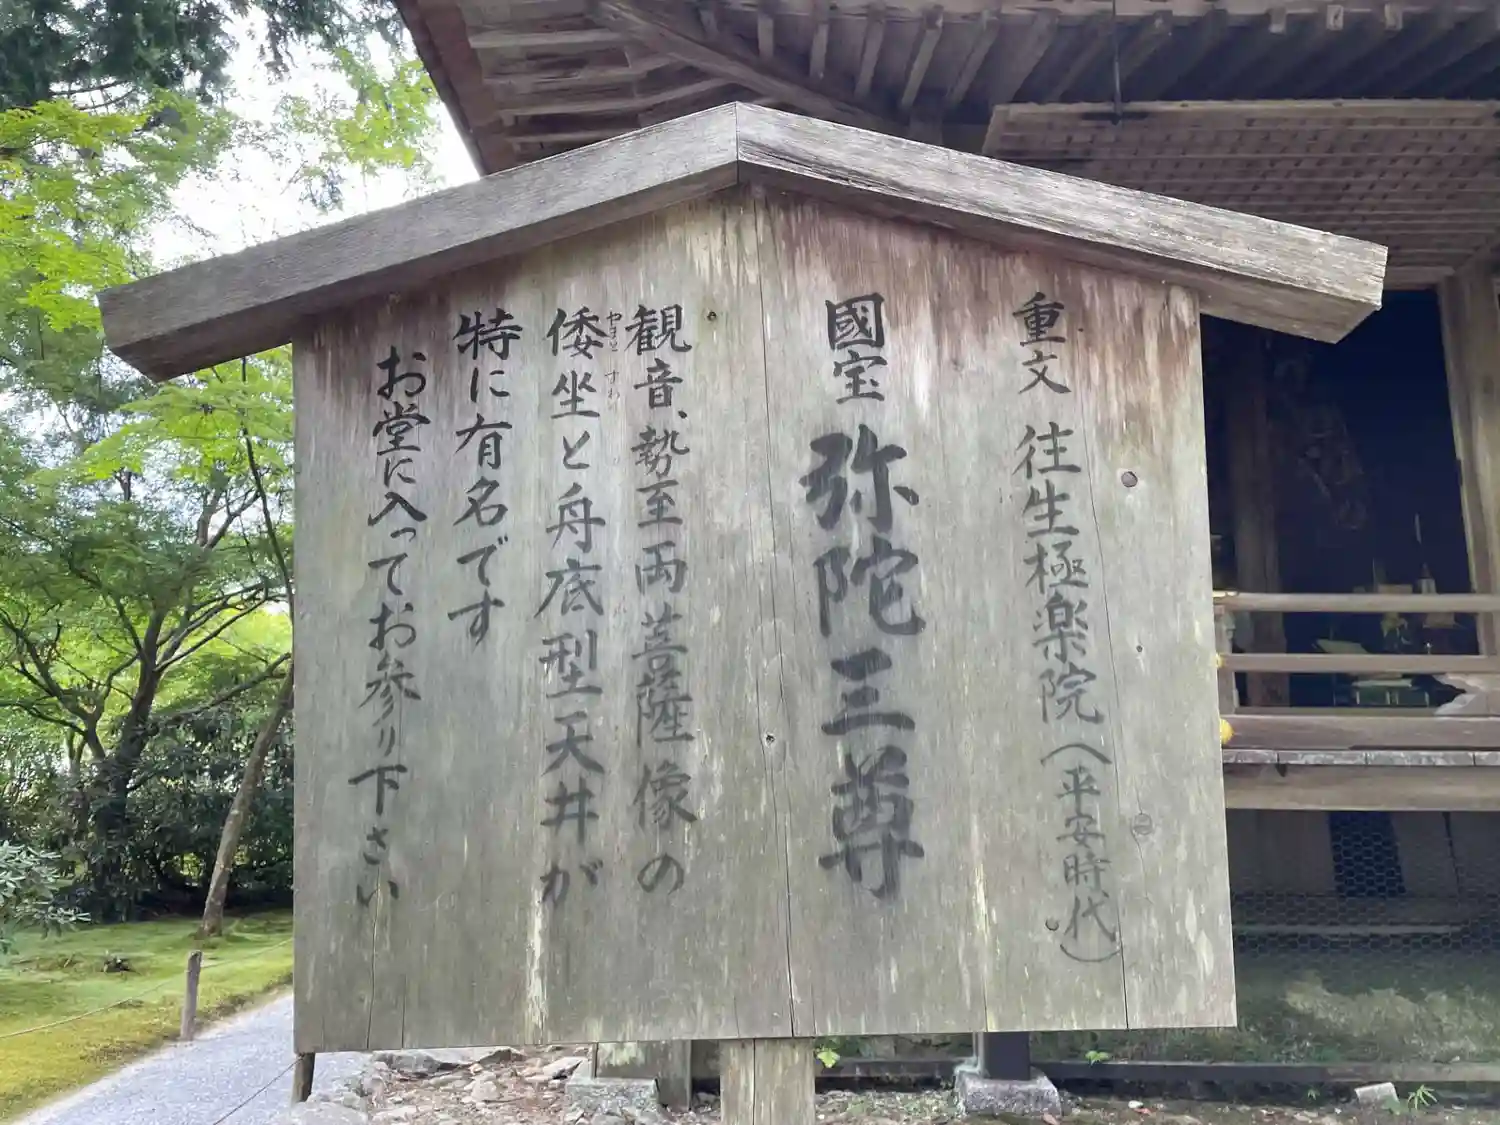 重文 往生極楽院(平安時代)
國宝 弥陀三尊
観音、勢至両菩薩像の
倭坐と舟底型天井が
やまと すわり
特に有名です
お堂に入ってお参り下さい